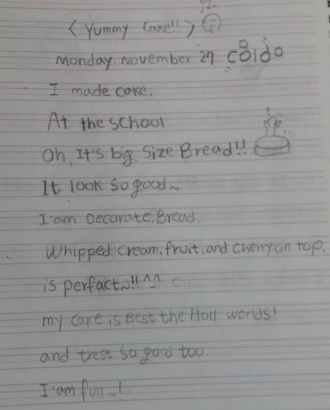 < Yummy Cake!! >
Monday. November 27. cold
I made cake.
At the school
Oh, It's big size Bread!!
It look so good~
I'am Decorate. Bread.
Whipped cream, fruit, and cherry on top.
is perfact~!! ^^
my cake is Best the Holl worlds!
and test so good too.
I'am full~!